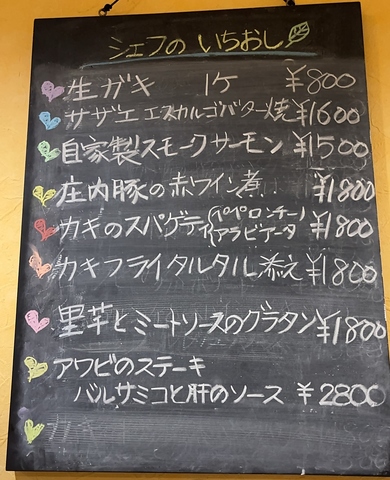 シェフの いちおし
生ガキ 1ケ ¥800
サザエ エスカルゴバター焼 ¥1600
自家製スモークサーモン ¥1500
庄内豚の赤ワイン煮 ¥1800
カキのスパゲティ(ペペロンチーノ アラビアータ ¥1800
カキフライタルタル添え ¥1800
里芋とミートソースのグラタン ¥1800
アワビのステーキ
バルサミコと肝のソース ¥2800
カキ